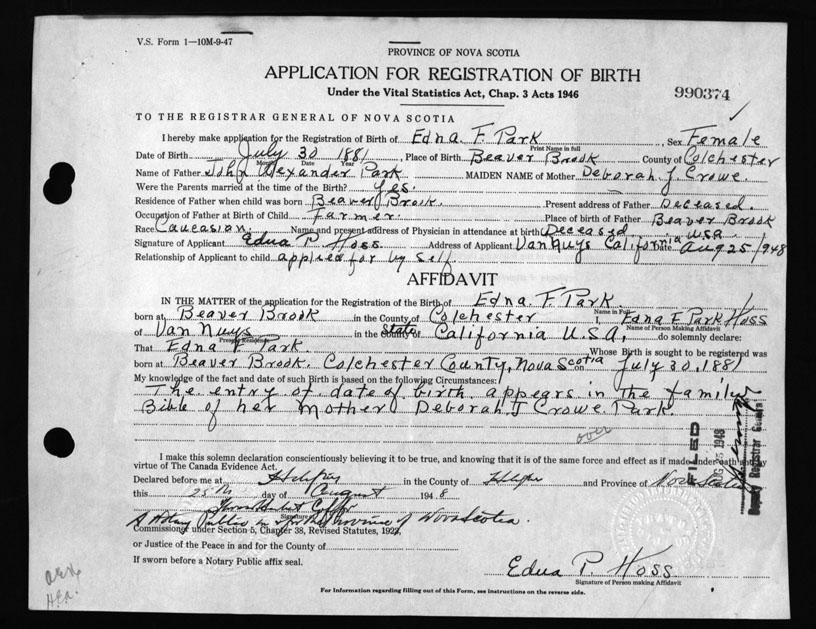 V.S. Form 1—10M-9-47
PROVINCE OF NOVA SCOTIA
APPLICATION FOR REGISTRATION OF BIRTH
Under the Vital Statistics Act, Chap. 3 Acts 1946
990374
TO THE REGISTRAR GENERAL OF NOVA SCOTIA
I hereby make application for the Registration of Birth of Edna F. Park, Sex Female
Print Name in full
Date of Birth July 30 1881, Place of Birth Beaver Brook County of Colchester
Month Date Year
Name of Father John Alexander Park MAIDEN NAME of Mother Deborah J Crowe.
Were the Parents married at the time of the Birth? Yes.
Residence of Father when child was born Beaver Brook. Present address of Father Deceased.
Occupation of Father at Birth of Child Farmer. Place of birth of Father Beaver Brook
Race Caucasian. Name and present address of Physician in attendance at birth Deceased
Signature of Applicant Edna P. Hoss. Address of Applicant Van Nuys California USA Date Aug 25/1948
Relationship of Applicant to child applied for by self.
AFFIDAVIT
IN THE MATTER of the application for the Registration of the Birth of Edna F. Park.
Name in Full
born at Beaver Brook in the County of Colchester I, Edna F Park Hoss
Name of Person Making Affidavit
of Van Nuys in the State of California U.S.A, do solemnly declare:
Present Residence
That Edna F Park. Whose Birth is sought to be registered was
born at Beaver Brook. Colchester County, Nova Scotia on July 30, 1881
My knowledge of the fact and date of such Birth is based on the following Circumstances:
The entry of date of birth appears in the family
Bible of her Mother Deborah J Crowe Park.
over
FILED
1948
Deputy Registrar General
I make this solemn declaration conscientiously believing it to be true, and knowing that it is of the same force and effect as if made under oath and by
virtue of The Canada Evidence Act.
Declared before me at Halifax in the County of Halifax and Province of Nova Scotia
this 25th day of August 1948
Signature
A Notary Public in & for the Province of Nova Scotia.
Commissioner under Section 5, Chapter 38, Revised Statutes, 1923,
or Justice of the Peace in and for the County of
If sworn before a Notary Public affix seal.
Edna P. Hoss
Signature of Person making Affidavit
For Information regarding filling out of this Form, see instructions on the reverse side.